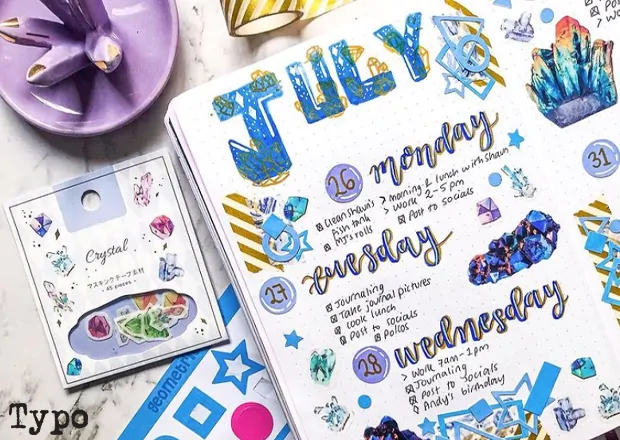 JULY
Post to
> Wor
monday
26
31
> Morning & lunch with Shaun
Clean Shaun's
fish tank
> Work 2-5 pm
MJ's rolls
Post to socials
tuesday
27
Journaling
Take journal pictures
Cook lunch
Post to socials
Pollos
wednesday
28
> Work 7am-1pm
Journaling
Post to socials
Andy's birthday
Crystal
マスキングテープ素材
- 45 pieces -
Geometri
Typo